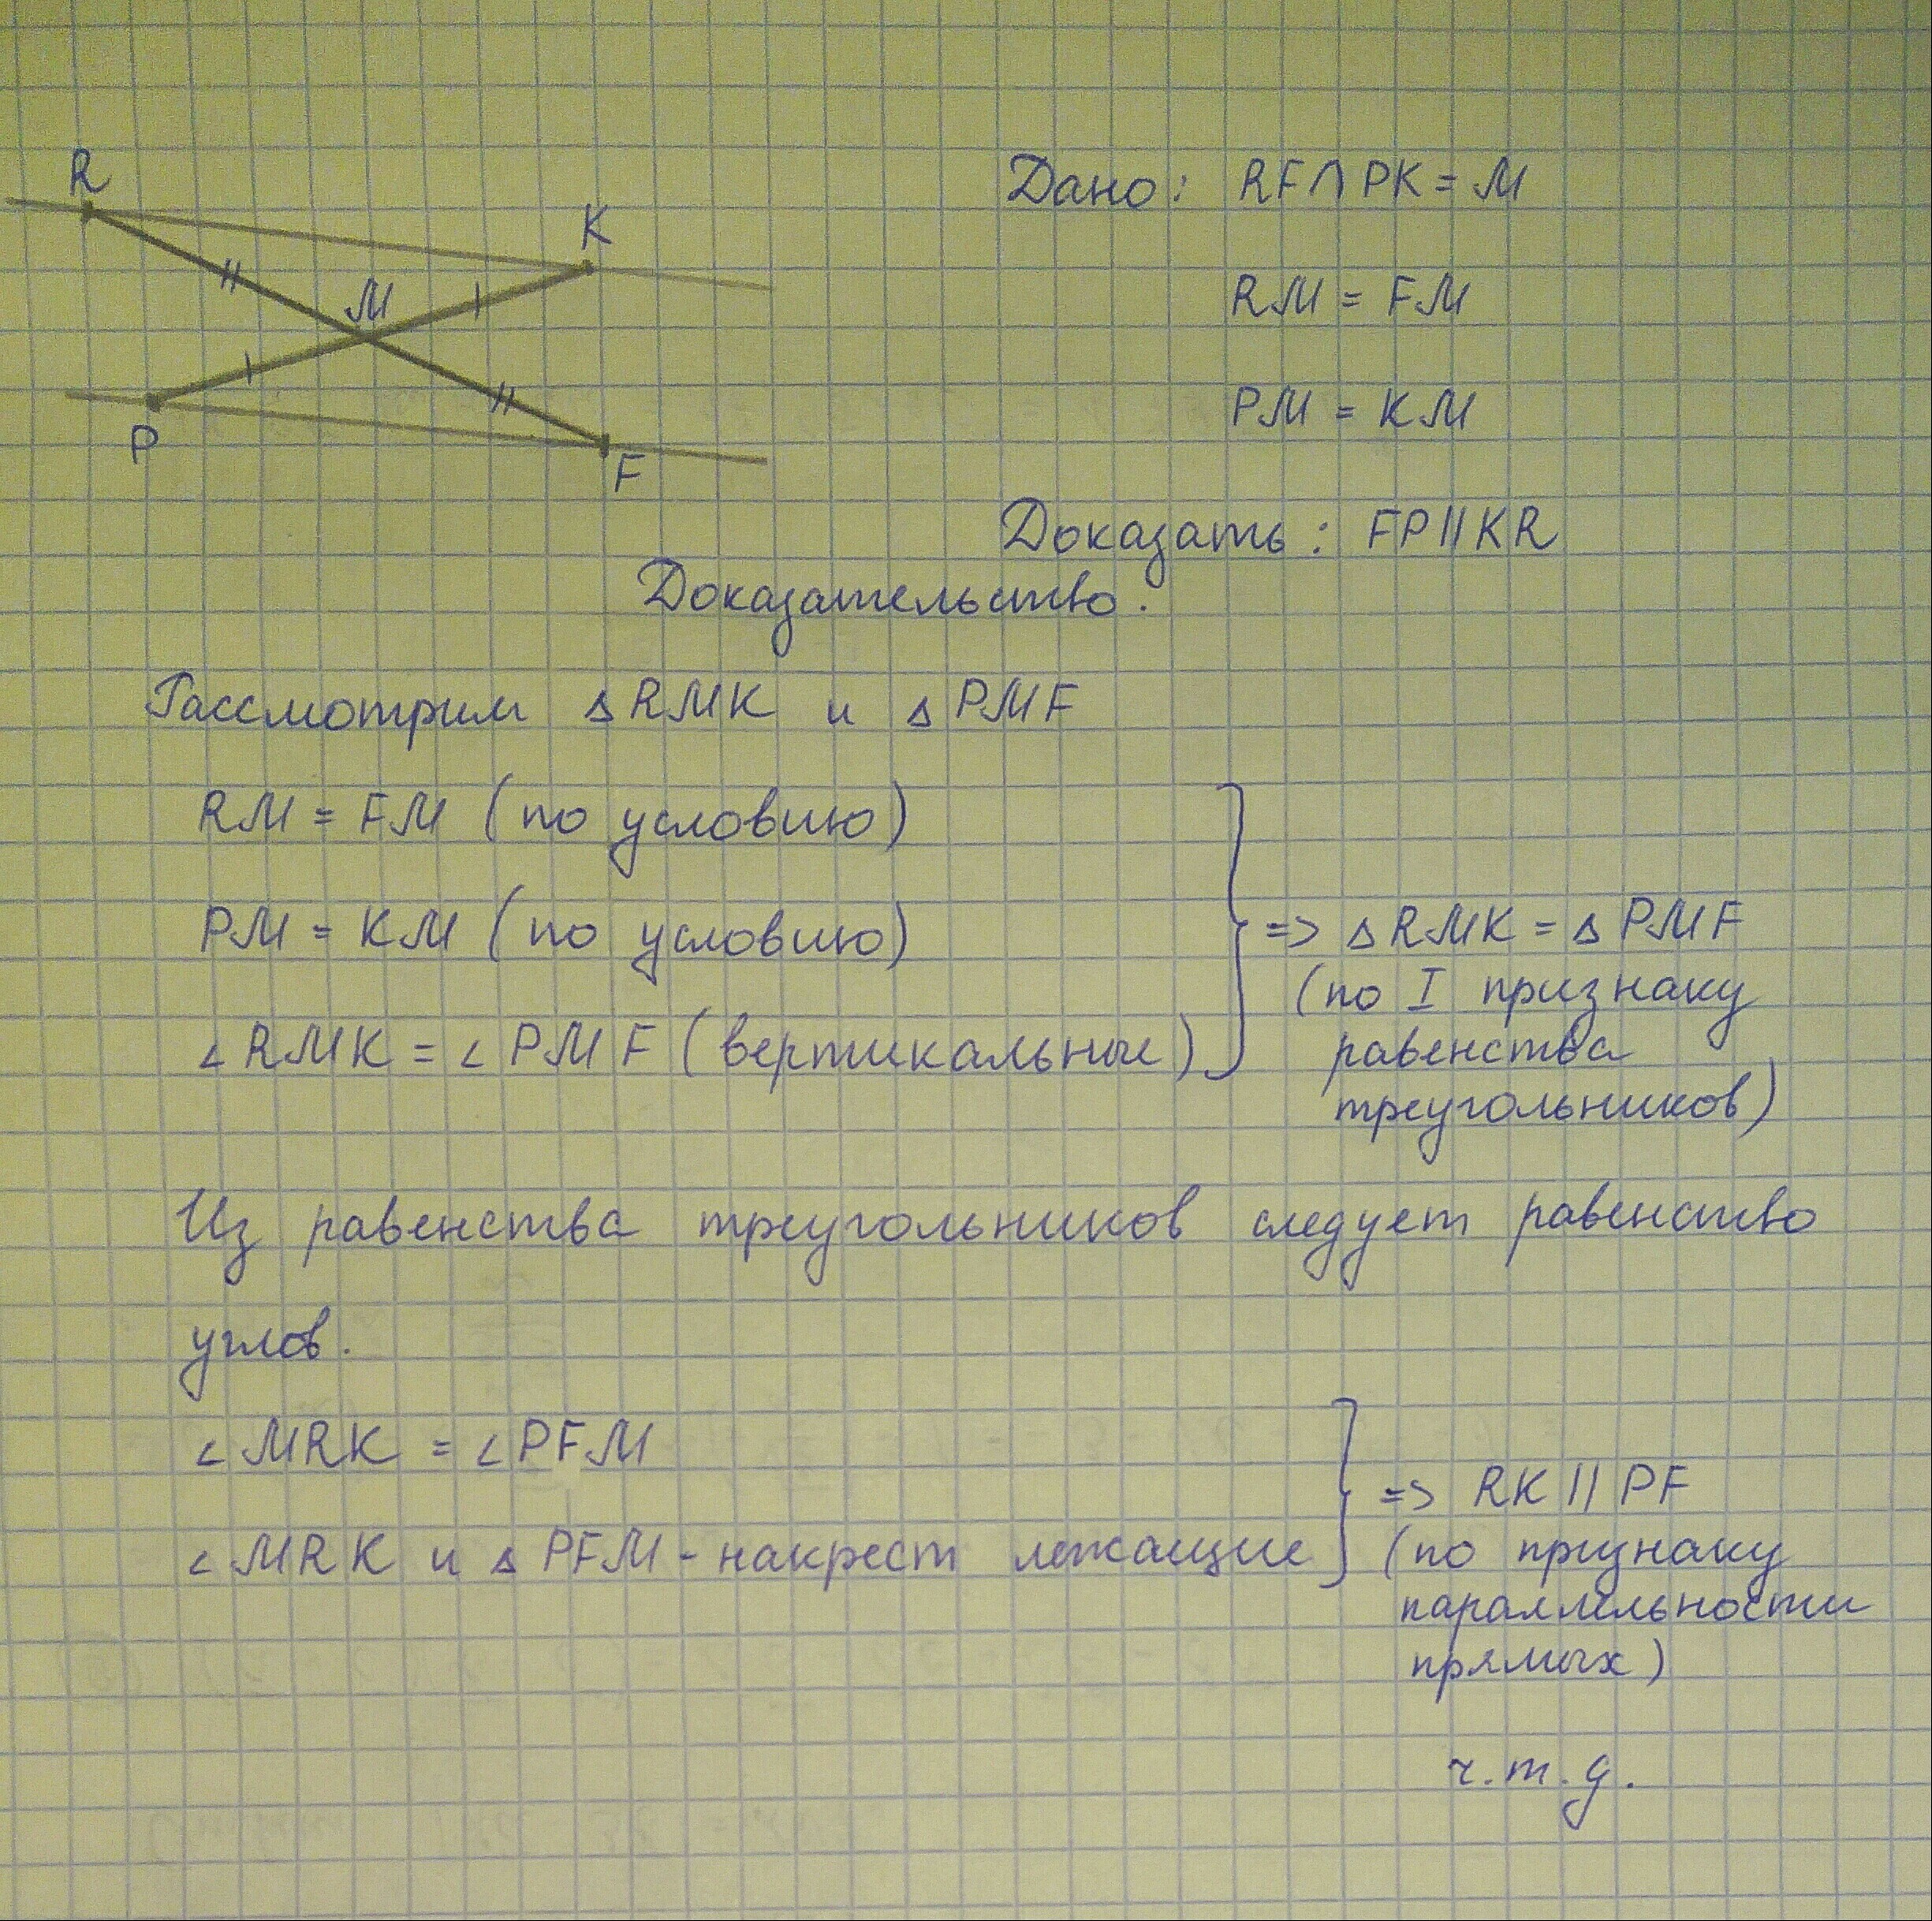 R
K
M
P
F
Дано: RF∩PK = M
RM = FM
PM = KM
Доказать: FP||KR
Доказательство.
Рассмотрим △RMK и △PMF
RM = FM (по условию)
PM = KM (по условию)
∠RMK = ∠PMF (вертикальные)
=> △RMK = △PMF
(по I признаку
равенства
треугольников)
Из равенства треугольников следует равенство
углов.
∠MRK = ∠PFM
∠MRK и △PFM - накрест лежащие
=> RK || PF
(по признаку
параллельности
прямых)
ч.т.д.